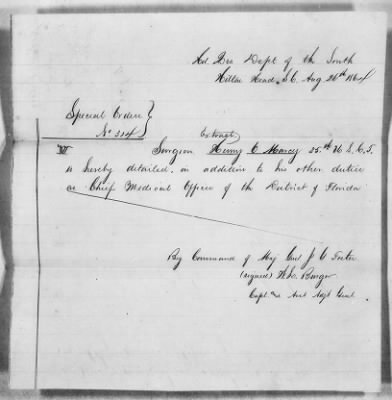 Hd. Qrs Dept of the South
Hilton Head, S.C. Aug 26th 1864
Special Orders
No 314
Extract
VI Surgeon Henry O Marcy 35th U.S.C.T.
is hereby detailed, in addition to his other duties
as Chief Medical Officer of the District of Florida
By Command of Maj Genl J G Foster
(signed) W.L.M. Burger
Capt. & Asst Adjt Genl